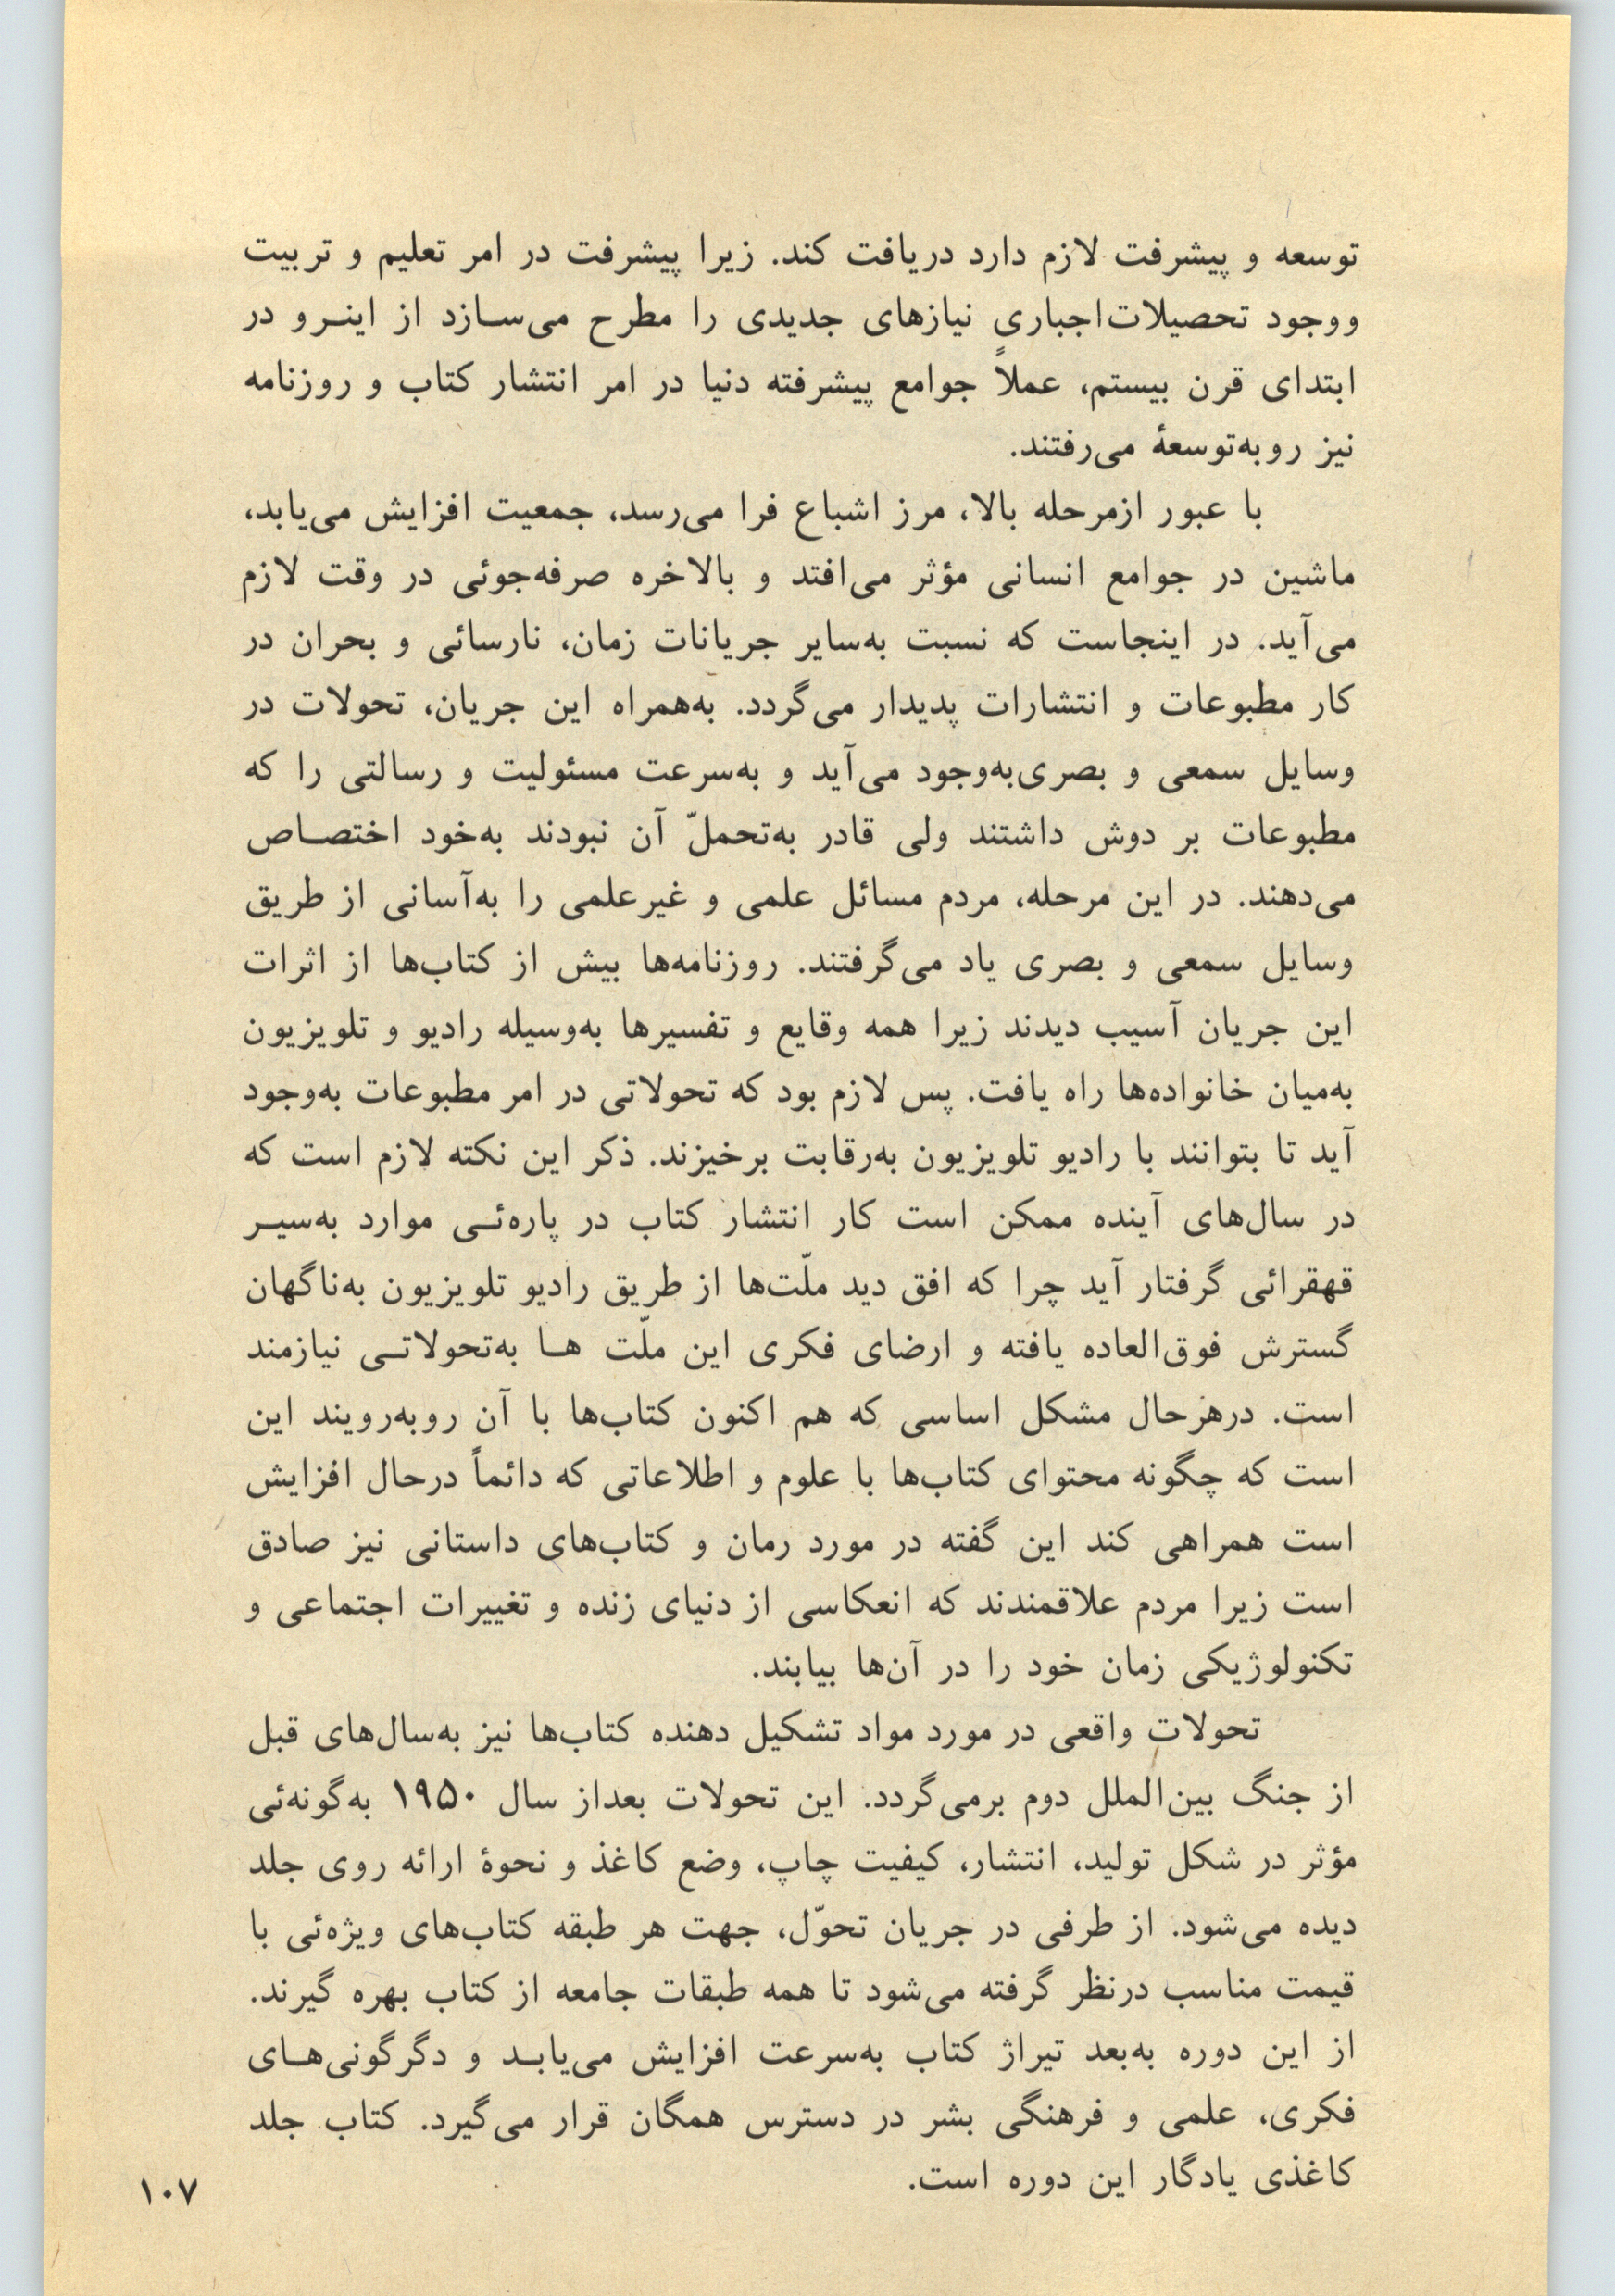 توسعه و پیشرفت لازم دارد دریافت کند. زیرا پیشرفت در امر تعلیم و تربیت
ووجود تحصیلات‌اجباری نیازهای جدیدی را مطرح می‌سازد از اینرو در
ابتدای قرن بیستم، عملاً جوامع پیشرفته دنیا در امر انتشار کتاب و روزنامه
نیز روبه‌توسعهٔ می‌رفتند.
با عبور ازمرحله بالا، مرز اشباع فرا می‌رسد، جمعیت افزایش می‌یابد،
ماشین در جوامع انسانی مؤثر می‌افتد و بالاخره صرفه‌جوئی در وقت لازم
می‌آید. در اینجاست که نسبت به‌سایر جریانات زمان، نارسائی و بحران در
کار مطبوعات و انتشارات پدیدار می‌گردد. به‌همراه این جریان، تحولات در
وسایل سمعی و بصری‌به‌وجود می‌آید و به‌سرعت مسئولیت و رسالتی را که
مطبوعات بر دوش داشتند ولی قادر به‌تحملّ آن نبودند به‌خود اختصاص
می‌دهند. در این مرحله، مردم مسائل علمی و غیرعلمی را به‌آسانی از طریق
وسایل سمعی و بصری یاد می‌گرفتند. روزنامه‌ها بیش از کتاب‌ها از اثرات
این جریان آسیب دیدند زیرا همه وقایع و تفسیرها به‌وسیله رادیو و تلویزیون
به‌میان خانواده‌ها راه یافت. پس لازم بود که تحولاتی در امر مطبوعات به‌وجود
آید تا بتوانند با رادیو تلویزیون به‌رقابت برخیزند. ذکر این نکته لازم است که
در سال‌های آینده ممکن است کار انتشار کتاب در پاره‌ئی موارد به‌سیر
قهقرائی گرفتار آید چرا که افق دید ملّت‌ها از طریق رادیو تلویزیون به‌ناگهان
گسترش فوق‌العاده یافته و ارضای فکری این ملّت ها به‌تحولاتی نیازمند
است. درهرحال مشکل اساسی که هم اکنون کتاب‌ها با آن روبه‌رویند این
است که چگونه محتوای کتاب‌ها با علوم و اطلاعاتی که دائماً درحال افزایش
است همراهی کند این گفته در مورد رمان و کتاب‌های داستانی نیز صادق
است زیرا مردم علاقمندند که انعکاسی از دنیای زنده و تغییرات اجتماعی و
تکنولوژیکی زمان خود را در آن‌ها بیابند.
تحولات واقعی در مورد مواد تشکیل دهنده کتاب‌ها نیز به‌سال‌های قبل
از جنگ بین‌الملل دوم برمی‌گردد. این تحولات بعداز سال ۱۹۵۰ به‌گونه‌ئی
مؤثر در شکل تولید، انتشار، کیفیت چاپ، وضع کاغذ و نحوهٔ ارائه روی جلد
دیده می‌شود. از طرفی در جریان تحوّل، جهت هر طبقه کتاب‌های ویژه‌ئی با
قیمت مناسب درنظر گرفته می‌شود تا همه طبقات جامعه از کتاب بهره گیرند.
از این دوره به‌بعد تیراژ کتاب به‌سرعت افزایش می‌یابد و دگرگونی‌های
فکری، علمی و فرهنگی بشر در دسترس همگان قرار می‌گیرد. کتاب جلد
کاغذی یادگار این دوره است.
۱۰۷